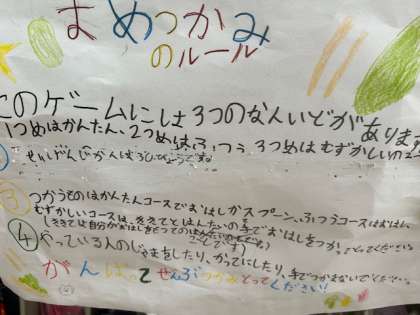 まめつかみ
のルール
このゲームには3つのなんいどがあります
1つめはかんたん、2つめはふつう、3つめはむずかしい
せいげんじかんは
③つかうものはかんたんコースでおはしかスプーン、ふつうコースはおはし、
むずかしいコースは、ききてとはんたいの手でおはしをつかってください
ききては自分がおはしをもつての
④やっている人のじゃまをしたり、かってにしたり、手でつかまないでください
がんばってぜんぶつかみとってください!!